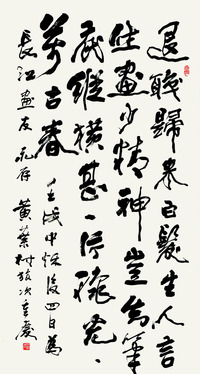 退職歸來白鬢生人言
畫少精神豈筆
底縱橫甚一片
萬古春 壬戌中秋後四日為
長江畫友永存 黃葉村旅次重慶